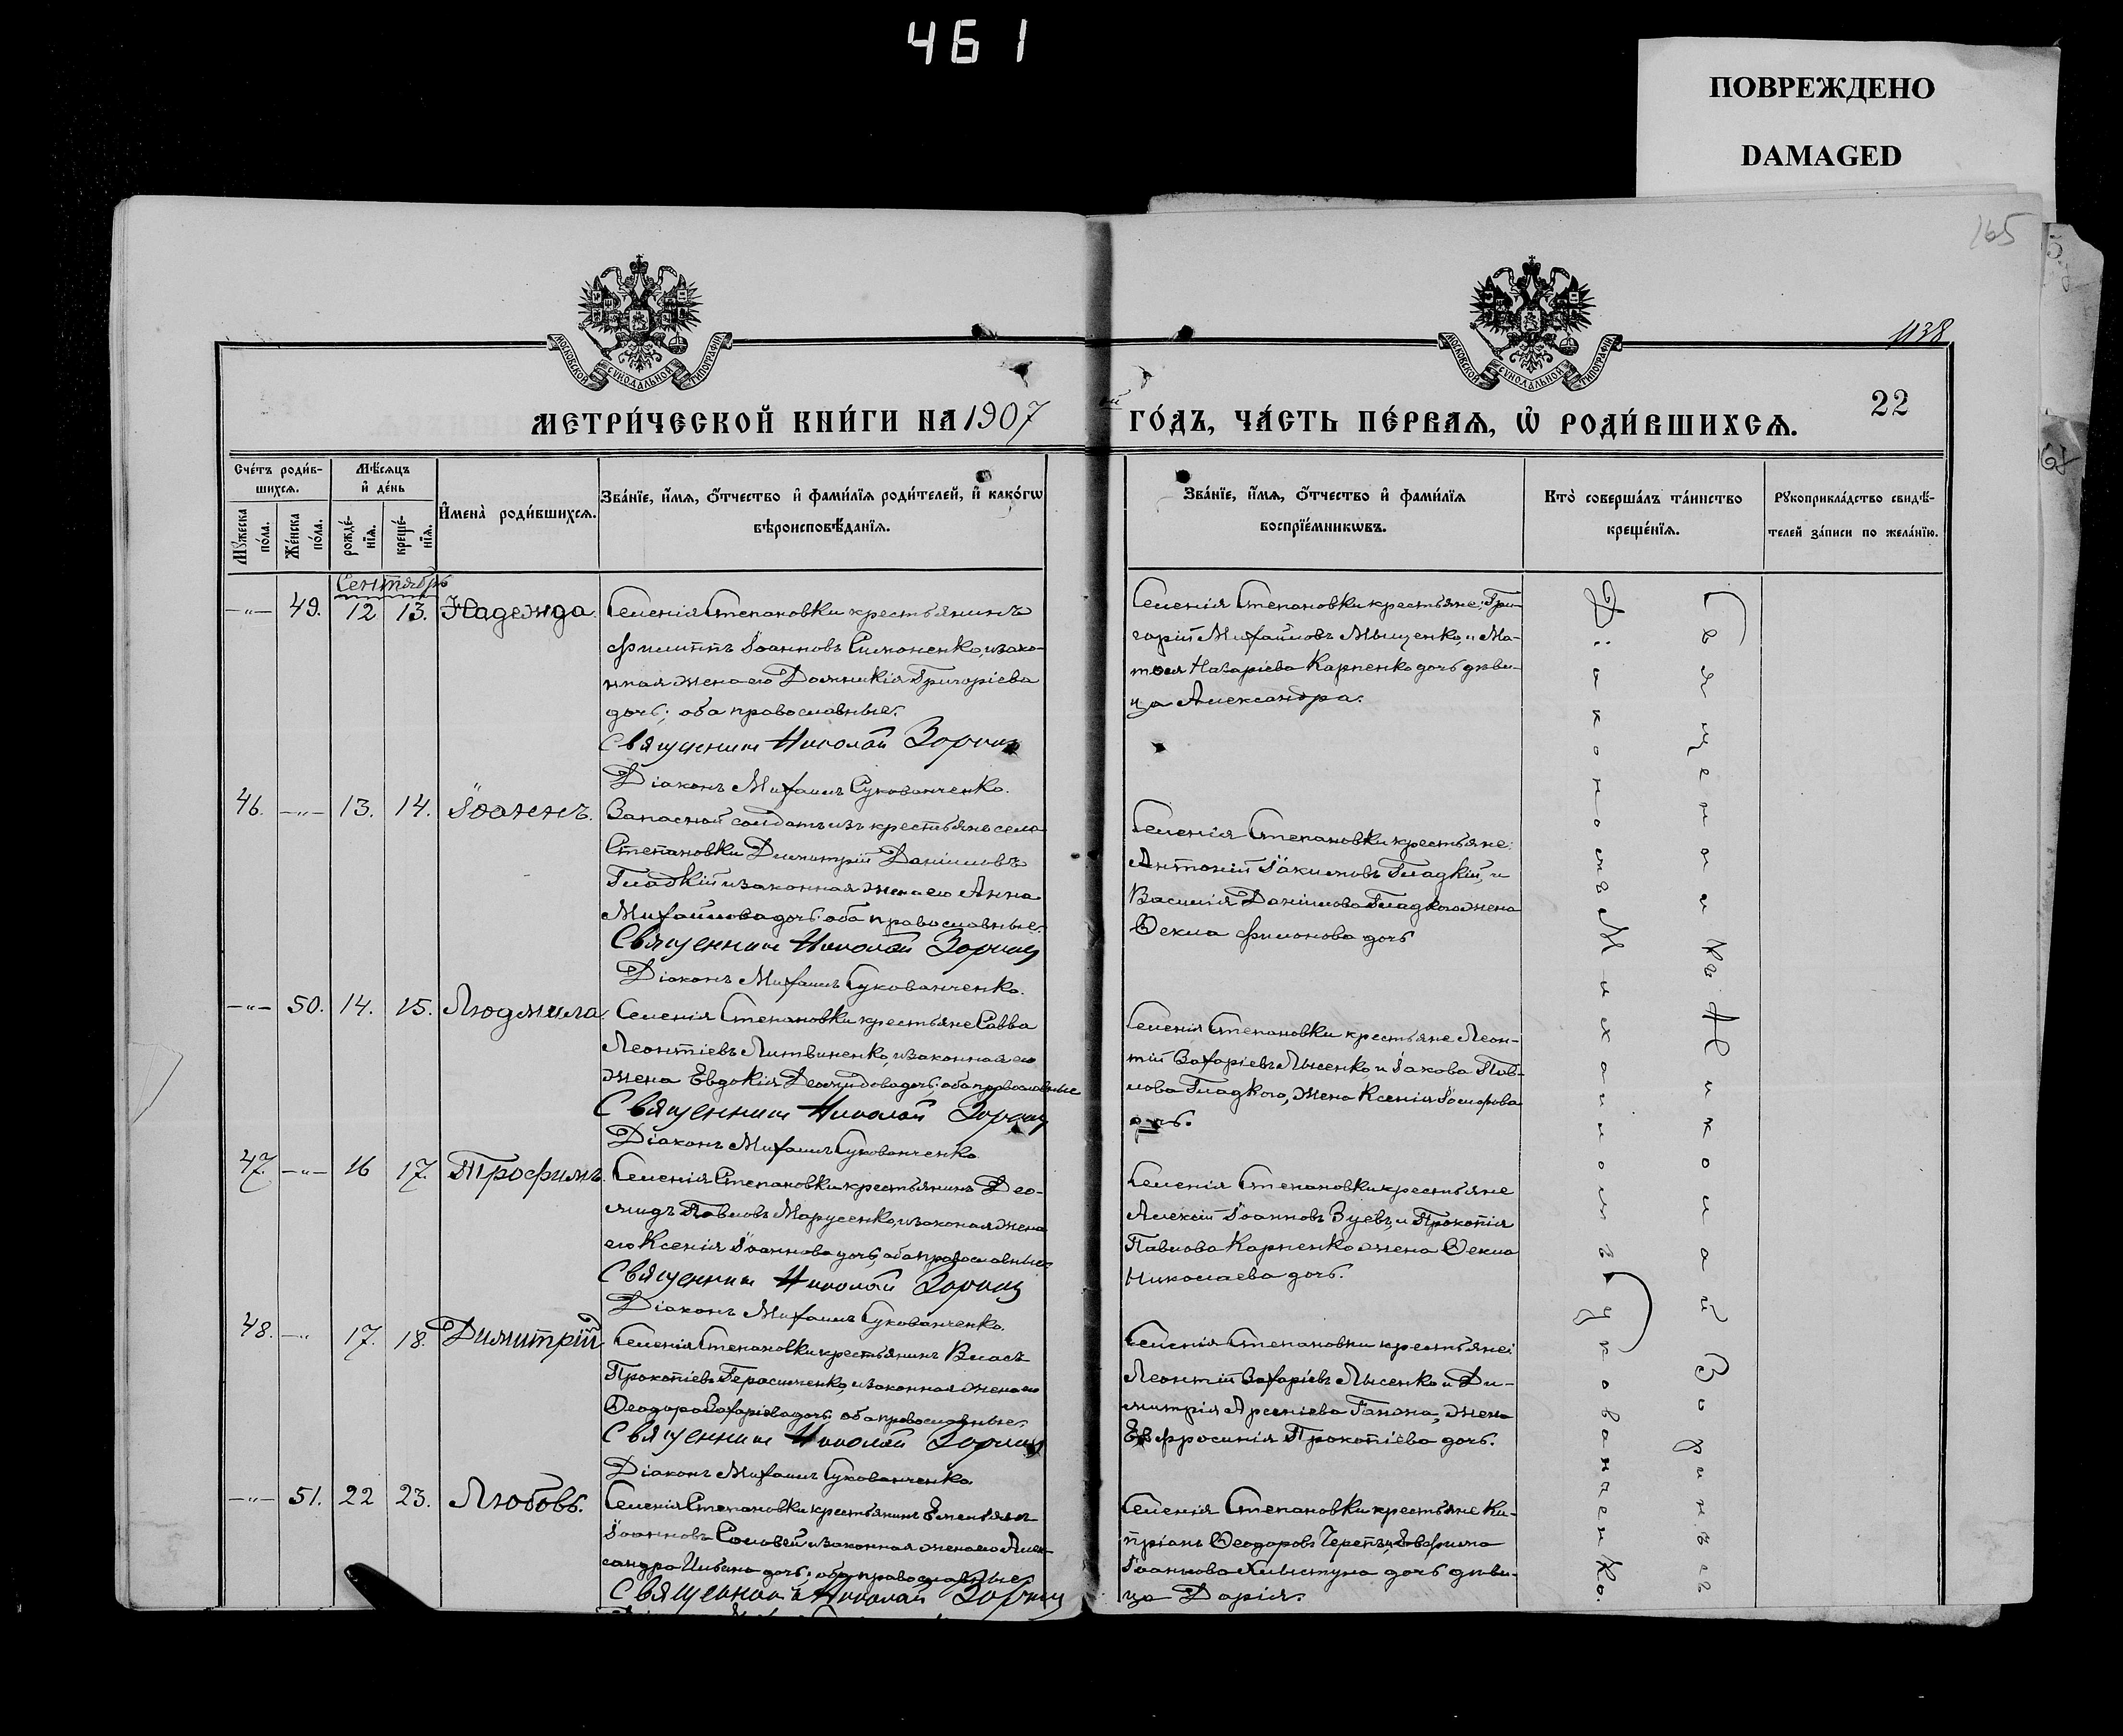 461
ПОВРЕЖДЕНО
DAMAGED
165
1138
МОСКОВСКОЙ СѴНОДАЛЬНОЙ ТИПОГРАФІИ
МОСКОВСКОЙ СѴНОДАЛЬНОЙ ТИПОГРАФІИ
МЕТРИ́ЧЕСКОЙ КНИ́ГИ НА 1907
ой ГО́ДЪ, ЧА́СТЬ ПЕ́РВАѦ, Ѡ҆ РОДИ́ВШИХСѦ.
22
Сче́тъ роди́в-
шихсѧ.
Мѣ́сѧцъ
и҆ де́нь
Мꙋ́жеска по́ла.
Же́нска по́ла.
рожде́-
нїѧ.
креще́-
нїѧ.
И҆мена̀ роди́вшихсѧ.
Зва́нїе, и҆́мѧ, ѻ҆́тчество и҆ фами́лїѧ роди́телей, и҆ како́гѡ
вѣроисповѣ́данїѧ.
Зва́нїе, и҆́мѧ, ѻ҆́тчество и҆ фами́лїѧ
воспрїе́мникѡвъ.
Кто̀ соверша́лъ та́инство
креще́нїѧ.
Рꙋкоприкла́дство свидѣ́-
телей за́писи по жела́нїю.
Сентябрь
—„— 49. 12 13. Надежда.
Селенія Степановки крестьянинъ
Филиппъ Іоанновъ Симоненко, и зако-
нная жена его Домникія Григоріева
дочь; оба православные.
Священникъ Николай Зоринъ
Діаконъ Михаилъ Сукованченко.
Селенія Степановки крестьяне: Гри-
горій Михайловъ Мищенко, и Ма-
тоея Назаріева Карпенко дочь дѣви-
ца Александра.
46. —„— 13. 14. Іоаннъ.
Запасной солдатъ изъ крестьянъ села
Степановки Димитрій Даніиловъ
Гладкій и законная жена его Анна
Михайлова дочь: оба православные.
Священникъ Николай Зоринъ
Діаконъ Михаилъ Сукованченко.
Селенія Степановки крестьяне:
Антоній Іакимовъ Гладкій, и
Василія Даніилова Гладкого жена
Ѳекла Филонова дочь
—„— 50. 14. 15. Людмила.
Селенія Степановки крестьяне Савва
Леонтіевъ Литвиненко, и законная его
жена Евдокія Деомидова дочь; оба православные
Священникъ Николай Зоринъ
Діаконъ Михаилъ Сукованченко
Селенія Степановки крестьяне Леон-
тій Захаріевъ Лысенко, и Іакова Пав-
лова Гладкого, жена Ксенія
дочь.
47. —„— 16 17. Трофимъ.
Селенія Степановки крестьянинъ Део-
мидъ Павловъ Марусенко, и законая жена
его Ксенія Іоаннова дочь, оба православные
Священникъ Николай Зоринъ
Діаконъ Михаилъ Сукованченко.
Селенія Степановки крестьяне
Алексій Іоанновъ Зуевъ, и Прокопія
Павлова Карпенко жена Ѳекла
Николаева дочь.
48. —„ 17. 18. Димитрій
Селенія Степановки крестьянинъ Власъ
Прокопіевъ Герасименко, и законная жена его
Ѳеодора Захаріева дочь: оба православные.
Священникъ Николай Зоринъ
Діаконъ Михаилъ Сукованченко.
Селенія Степановки крестьяне:
Леонтій Захаріевъ Лысенко и Ди-
митрія Арсеніева Гапона, жена
Евфросинія Прокопіева дочь.
—„— 51. 22 23. Любовь.
Селенія Степановки крестьянинъ Емельянъ
Іоанновъ Соловей и законная жена его Алек-
сандра дочь; оба православные
Священникъ Николай Зоринъ
Селенія Степановки крестьяне Ки-
пріанъ Ѳеодоровъ Черепъ, и
Іоаннова Хвистуна дочь дѣви-
ца Дарія.
Священникъ Николай Зоринъ съ
Діакономъ Михаиломъ Сукованченко.